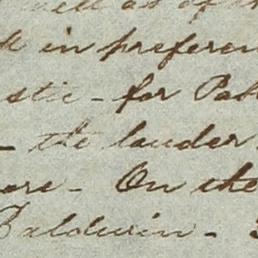 well as of th
in preferen
stic - for Pat
- the lauder
are - On the
Baldwin -